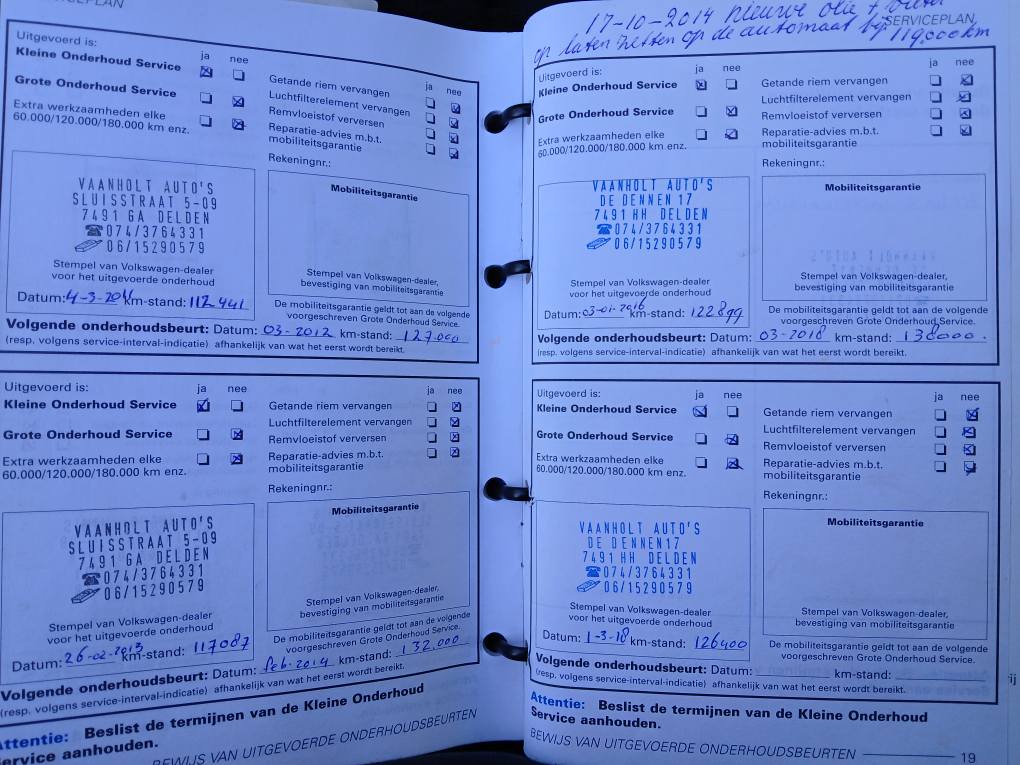 CEPLAN
Uitgevoerd is:
ja nee
Kleine Onderhoud Service
Grote Onderhoud Service
Extra werkzaamheden elke
60.000/120.000/180.000 km enz.
ja nee
Getande riem vervangen
Luchtfilterelement vervangen
Remvloeistof verversen
Reparatie-advies m.b.t.
mobiliteitsgarantie
Rekeningnr.:
VAANHOLT AUTO'S
SLUISSTRAAT 5-09
7491 GA DELDEN
☎074/3764331
06/15290579
Stempel van Volkswagen-dealer
voor het uitgevoerde onderhoud
Datum: 4-3- km-stand: 112441
Mobiliteitsgarantie
Stempel van Volkswagen-dealer,
bevestiging van mobiliteitsgarantie
De mobiliteitsgarantie geldt tot aan de volgende
voorgeschreven Grote Onderhoud Service.
Volgende onderhoudsbeurt: Datum: 03-2012 km-stand: 127.000
(resp. volgens service-interval-indicatie) afhankelijk van wat het eerst wordt bereikt.
Uitgevoerd is:
ja nee
Kleine Onderhoud Service
Grote Onderhoud Service
Extra werkzaamheden elke
60.000/120.000/180.000 km enz.
ja nee
Getande riem vervangen
Luchtfilterelement vervangen
Remvloeistof verversen
Reparatie-advies m.b.t.
mobiliteitsgarantie
Rekeningnr.:
VAANHOLT AUTO'S
SLUISSTRAAT 5-09
7491 GA DELDEN
☎074/3764331
06/15290579
Stempel van Volkswagen-dealer
voor het uitgevoerde onderhoud
Datum: 26-02-2013 km-stand: 117087
Mobiliteitsgarantie
Stempel van Volkswagen-dealer,
bevestiging van mobiliteitsgarantie
De mobiliteitsgarantie geldt tot aan de volgende
voorgeschreven Grote Onderhoud Service.
Volgende onderhoudsbeurt: Datum: feb. 2014 km-stand: 132.000
(resp. volgens service-interval-indicatie) afhankelijk van wat het eerst wordt bereikt.
Attentie: Beslist de termijnen van de Kleine Onderhoud
Service aanhouden.
BEWIJS VAN UITGEVOERDE ONDERHOUDSBEURTEN
17-10-2014 nieuwe olie +
SERVICEPLAN
op laten zetten op de automaat bij 119.000 km
Uitgevoerd is:
ja nee
Kleine Onderhoud Service
Grote Onderhoud Service
Extra werkzaamheden elke
60.000/120.000/180.000 km enz.
ja nee
Getande riem vervangen
Luchtfilterelement vervangen
Remvloeistof verversen
Reparatie-advies m.b.t.
mobiliteitsgarantie
Rekeningnr.:
VAANHOLT AUTO'S
DE DENNEN 17
7491 HH DELDEN
☎074/3764331
06/15290579
Stempel van Volkswagen-dealer
voor het uitgevoerde onderhoud
Datum: 03-01-2016 km-stand: 122899
Mobiliteitsgarantie
Stempel van Volkswagen-dealer,
bevestiging van mobiliteitsgarantie
De mobiliteitsgarantie geldt tot aan de volgende
voorgeschreven Grote Onderhoud Service.
Volgende onderhoudsbeurt: Datum: 03-2018 km-stand: 138000.
(resp. volgens service-interval-indicatie) afhankelijk van wat het eerst wordt bereikt.
Uitgevoerd is:
ja nee
Kleine Onderhoud Service
Grote Onderhoud Service
Extra werkzaamheden elke
60.000/120.000/180.000 km enz.
ja nee
Getande riem vervangen
Luchtfilterelement vervangen
Remvloeistof verversen
Reparatie-advies m.b.t.
mobiliteitsgarantie
Rekeningnr.:
VAANHOLT AUTO'S
DE DENNEN17
7491 HH DELDEN
☎074/3764331
06/15290579
Stempel van Volkswagen-dealer
voor het uitgevoerde onderhoud
Datum: 1-3-18 km-stand: 126400
Mobiliteitsgarantie
Stempel van Volkswagen-dealer,
bevestiging van mobiliteitsgarantie
De mobiliteitsgarantie geldt tot aan de volgende
voorgeschreven Grote Onderhoud Service.
Volgende onderhoudsbeurt: Datum: km-stand:
(resp. volgens service-interval-indicatie) afhankelijk van wat het eerst wordt bereikt.
Attentie: Beslist de termijnen van de Kleine Onderhoud
Service aanhouden.
BEWIJS VAN UITGEVOERDE ONDERHOUDSBEURTEN 19